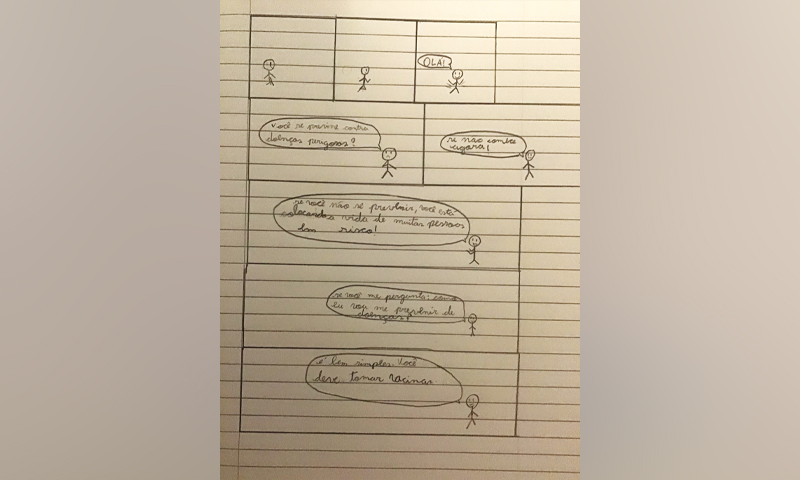 OLÁ!
você se previne contra
doenças perigosas?
se não
agora!
se você não se prevenir, você está
colocando a vida de muitas pessoas
em risco!
se você me pergunta: como
eu vou me prevenir de
doenças?
é bem simples. Você
deve tomar vacinas